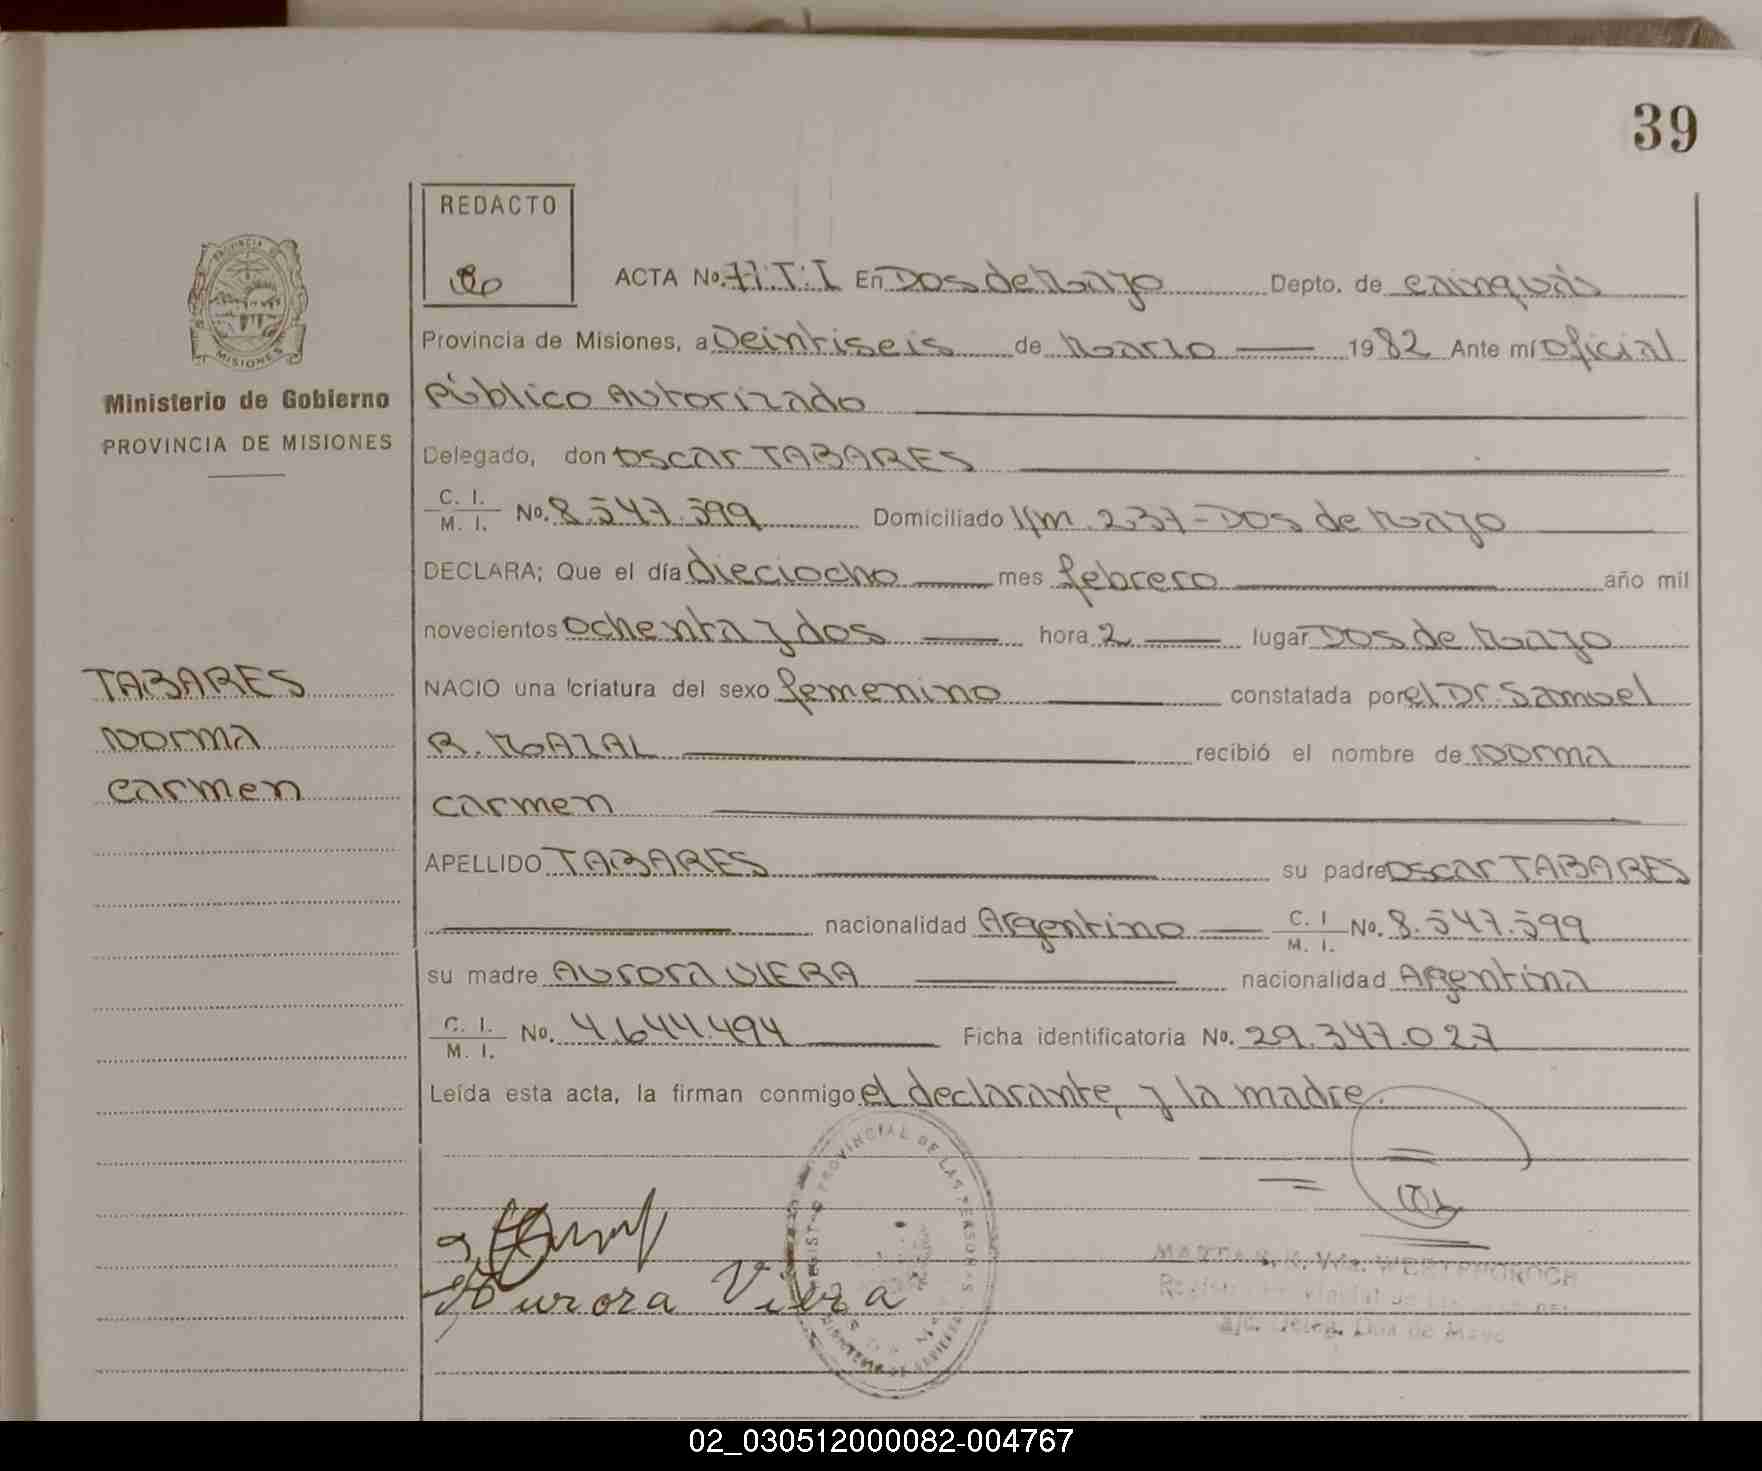 39
REDACTO
ACTA No. 71.T:I En Dos de Mayo Depto. de Cainguás
Provincia de Misiones, a Veintiseis de Marzo 1982 Ante mí Oficial
Público Autorizado
Ministerio de Gobierno
PROVINCIA DE MISIONES
Delegado, don Oscar TABARES
C. I. M. I. No. 8.547.599 Domiciliado Km. 237 - Dos de Mayo
DECLARA; Que el día dieciocho mes febrero año mil
novecientos ochenta y dos hora 2 lugar Dos de Mayo
TABARES
Norma
Carmen
NACIO una criatura del sexo femenino constatada por el Dr. Samuel
R. MAZAL recibió el nombre de Norma
Carmen
APELLIDO TABARES su padre Oscar TABARES
nacionalidad Argentino C. I M. I. No. 8.547.599
su madre Aurora VIERA nacionalidad Argentina
C. I. M. I. No. 4.644.494 Ficha identificatoria No. 29.347.027
Leída esta acta, la firman conmigo el declarante, y la madre.
PROVINCIAL DE LAS PERSONAS
Aurora Viera
MARTA Vda.
Deleg. Dos de Mayo
02_030512000082-004767